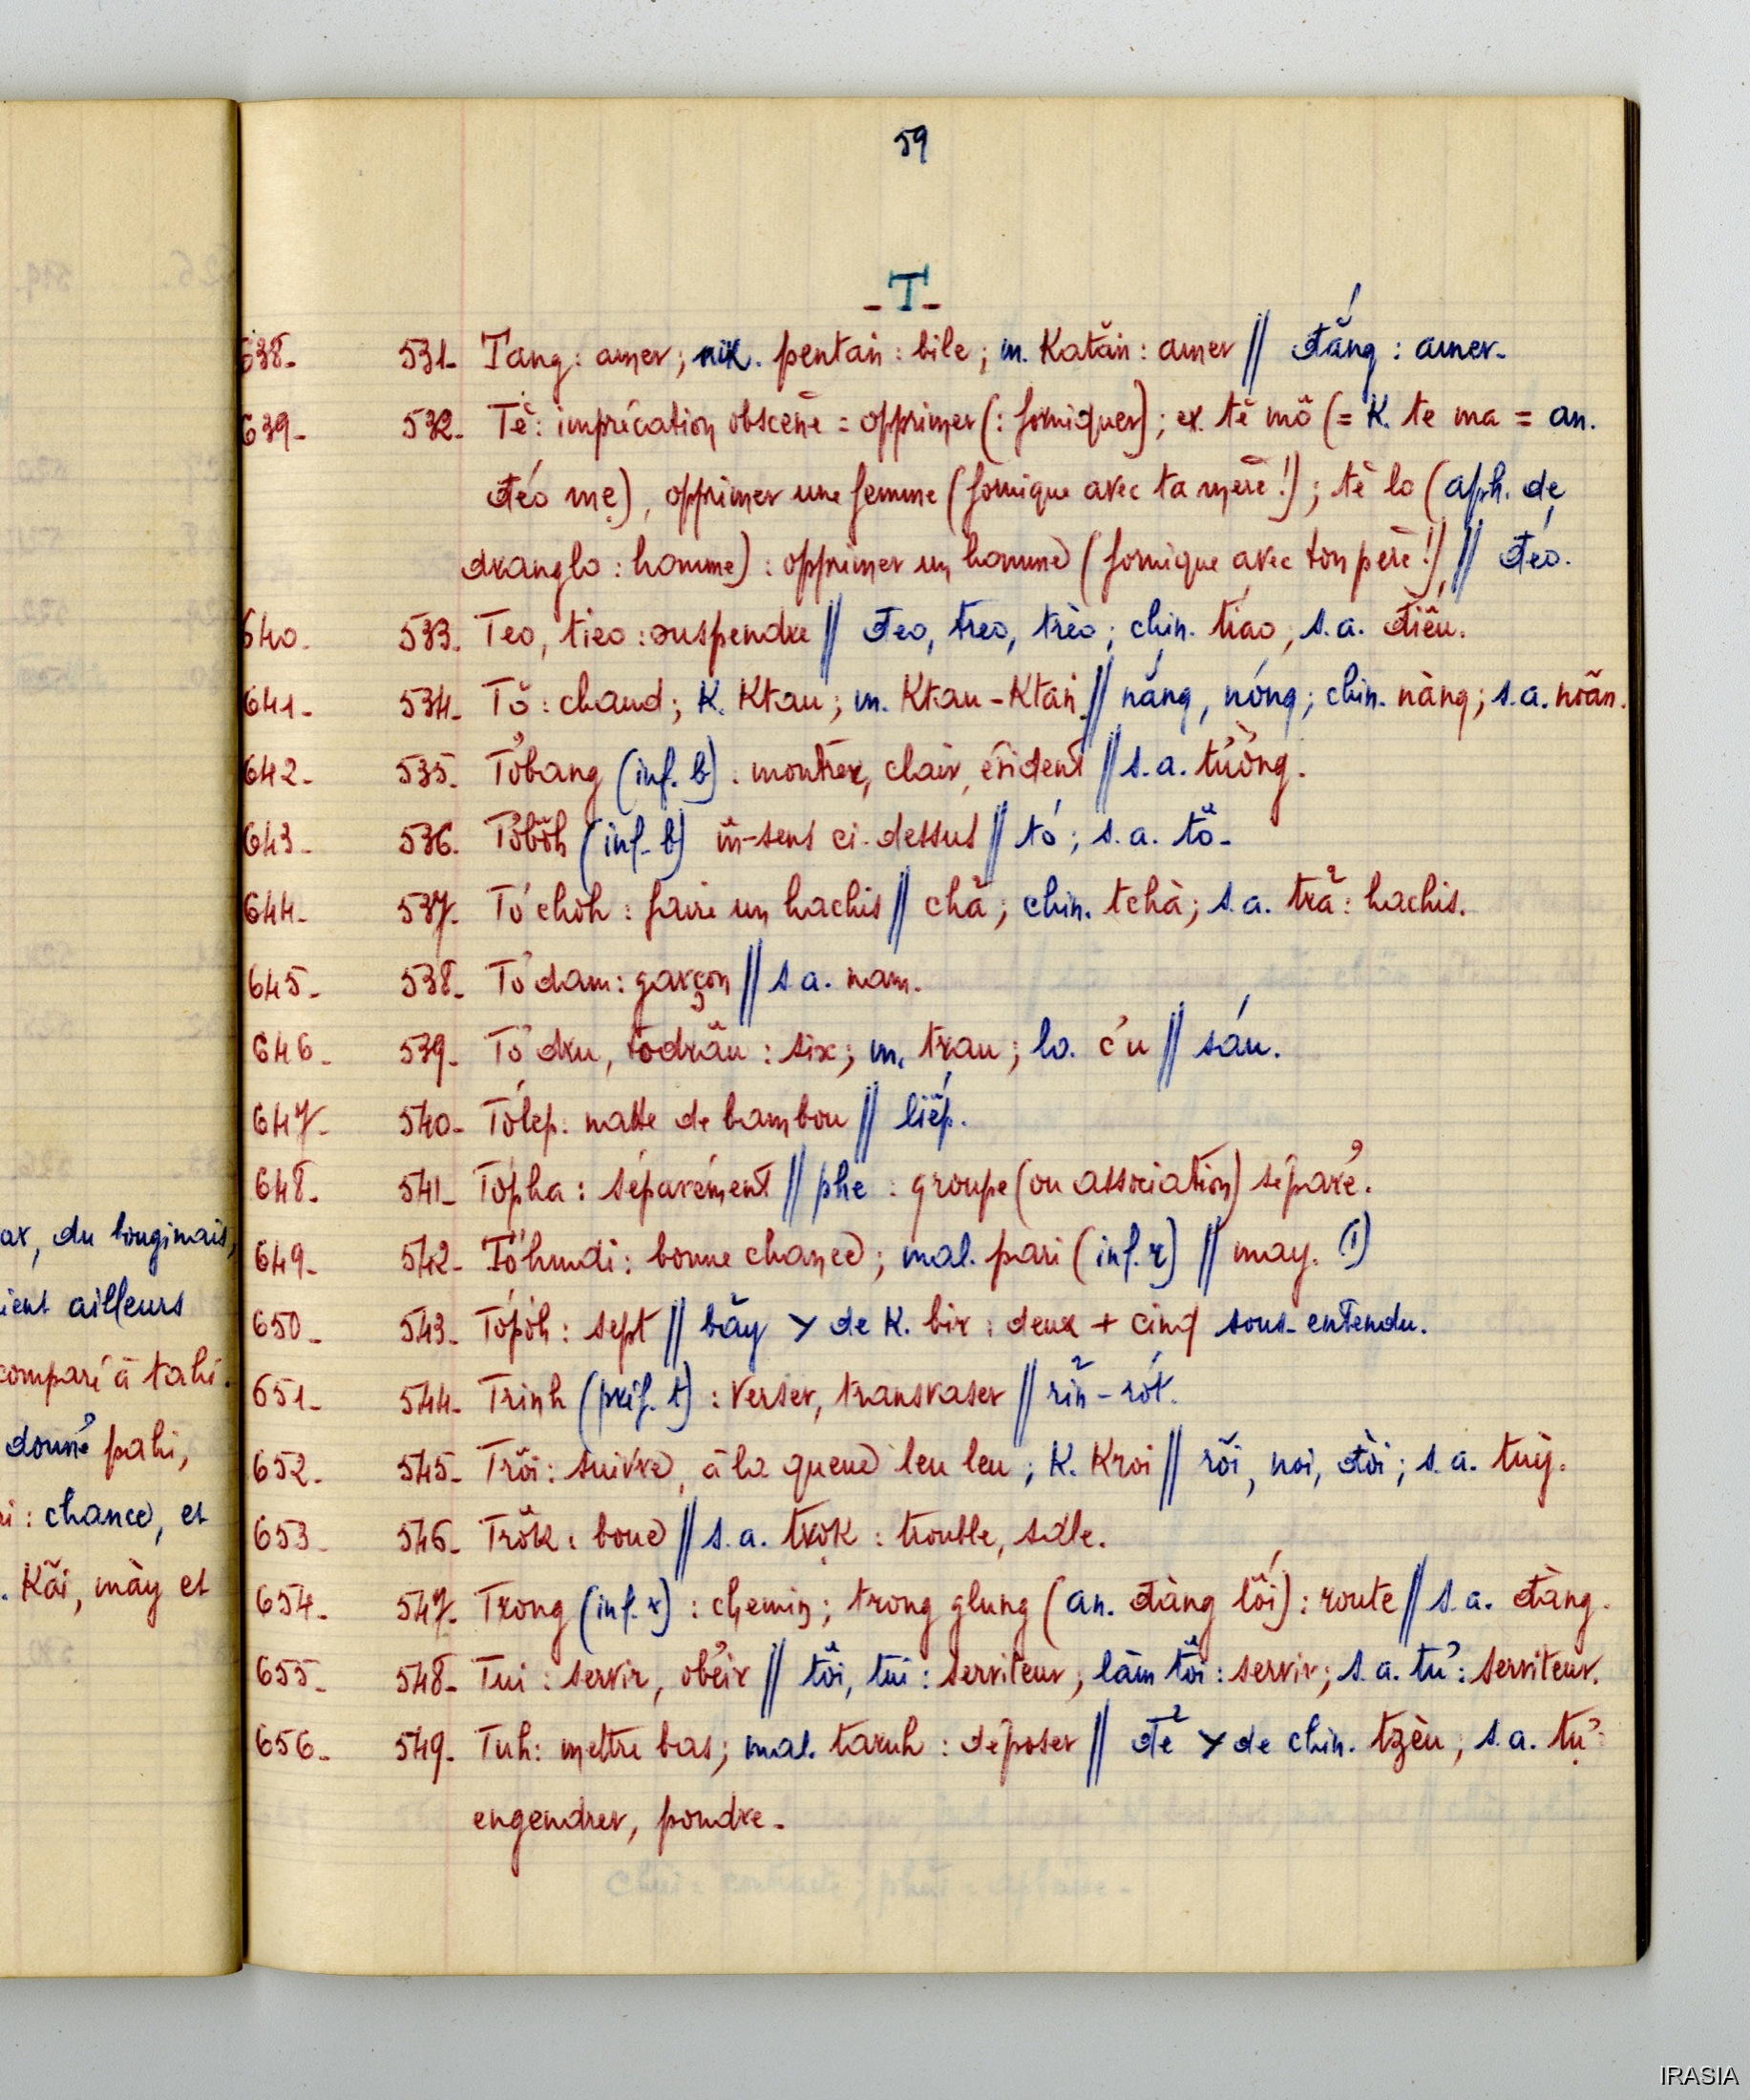 59
- T -
638- 531- Tang: amer; nik. pentaṅ: bile; m. Katăṅ: amer // đắng: amer-
639- 532- Tè: imprécation obscène = opprimer (: forniquer); ex. tè mô (= K. te ma = an.
đéo mẹ), opprimer une femme (fornique avec ta mère!); tè lo (aph. de
dranglo: homme): opprimer un homme (fornique avec ton père!) // đéo.
640- 533- Teo, tieo: suspendre // đeo, treo, trèo; chin. tiáo, s.a. điếu.
641- 534- Tŏ: chaud; K. Ktau; m. Ktau-Ktaṅ // nắng, nóng; chin. nàng; s.a. noãn.
642- 535- Tơbang (inf. b): montrer, clair, évident // s.a. tường.
643- 536- Tơbŏh (inf. b) m̂-sens ci-dessus // tỏ; s.a. tố-
644- 537- Tơ choh: faire un hachis // chả; chin. tchà; s.a. trả: hachis.
645- 538- Tơ dam: garçon // s.a. nam.
646- 539- Tơ dru, tơdrău: six; m. trau; lo. c'u // sáu.
647- 540- Tơlep: natte de bambou // liếp.
648- 541- Tơpha: séparément // phe: groupe (ou association) séparé.
649- 542- Tơhmdi: bonne chance; mal. pari (inf. r) // may. (1)
650- 543- Tơpơh: sept // bảy > de K. bir: deux + cinq sous-entendu.
651- 544- Trinh (préf. t): verser, transvaser // rỉn-rót.
652- 545- Trŏi: suivre, à la queue leu leu; K. Kroi // rồi, noi, đòi; s.a. tùy.
653- 546- Trŏk: boue // s.a. trọk: trouble, sale.
654- 547- Trong (inf. r): chemin; trong glung (an. đàng lối): route // s.a. đàng.
655- 548- Tui: servir, obéir // tôi, tui: serviteur; làm tôi: servir; s.a. tư: serviteur.
656- 549- Tuh: mettre bas; mal. taruh: déposer // đẻ > de chin. tzèu; s.a. tự:
engendrer, pondre-
du longinais,
ailleurs
comparé à tahi.
donné pahi,
: chance, et
. Kăi, mày et
IRASIA